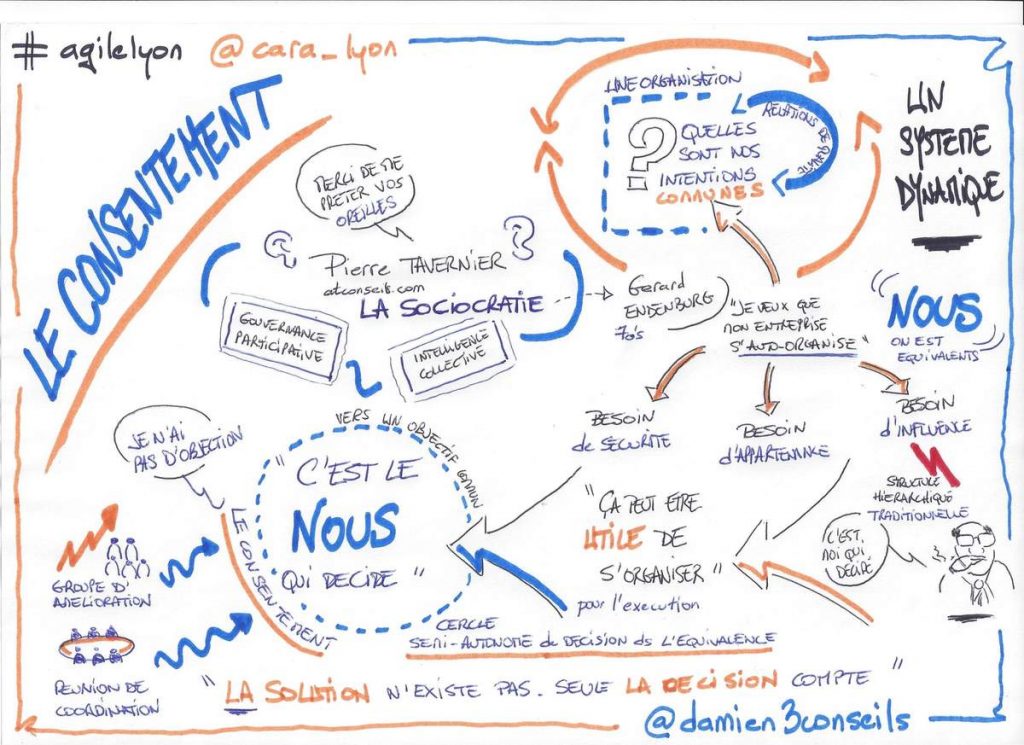 # agilelyon @cara_lyon
LE CONSENTEMENT
MERCI DE ME
PRÊTER VOS
OREILLES
Pierre TAVERNIER
atconseils.com
LA SOCIOCRATIE
GOUVERNANCE
PARTICIPATIVE
INTELLIGENCE
COLLECTIVE
Gerard
ENDENBURG
70's
UNE ORGANISATION
? QUELLES
SONT NOS
INTENTIONS
COMMUNES
RELATIONS DE
UN
SYSTEME
DYNAMIQUE
"JE VEUX QUE
MON ENTREPRISE
S'AUTO-ORGANISE"
"NOUS
ON EST
EQUIVALENTS"
BESOIN
de SÉCURITÉ
BESOIN
d'APPARTENANCE
BESOIN
d'INFLUENCE
STRUCTURE
HIERARCHIQUE
TRADITIONNELLE
C'EST
MOI QUI
DÉCIDE
JE N'AI
PAS D'OBJECTION
VERS UN OBJECTIF COMMUN
"C'EST LE
NOUS
QUI DECIDE"
LE CONSENTEMENT
"ÇA PEUT ETRE
UTILE DE
S'ORGANISER"
pour l'execution
GROUPE D'
AMELIORATION
CERCLE
SEMI-AUTONOME de DECISION ds L'EQUIVALENCE
REUNION DE
COORDINATION
"LA SOLUTION N'EXISTE PAS. SEULE LA DECISION COMPTE"
@damien3conseils